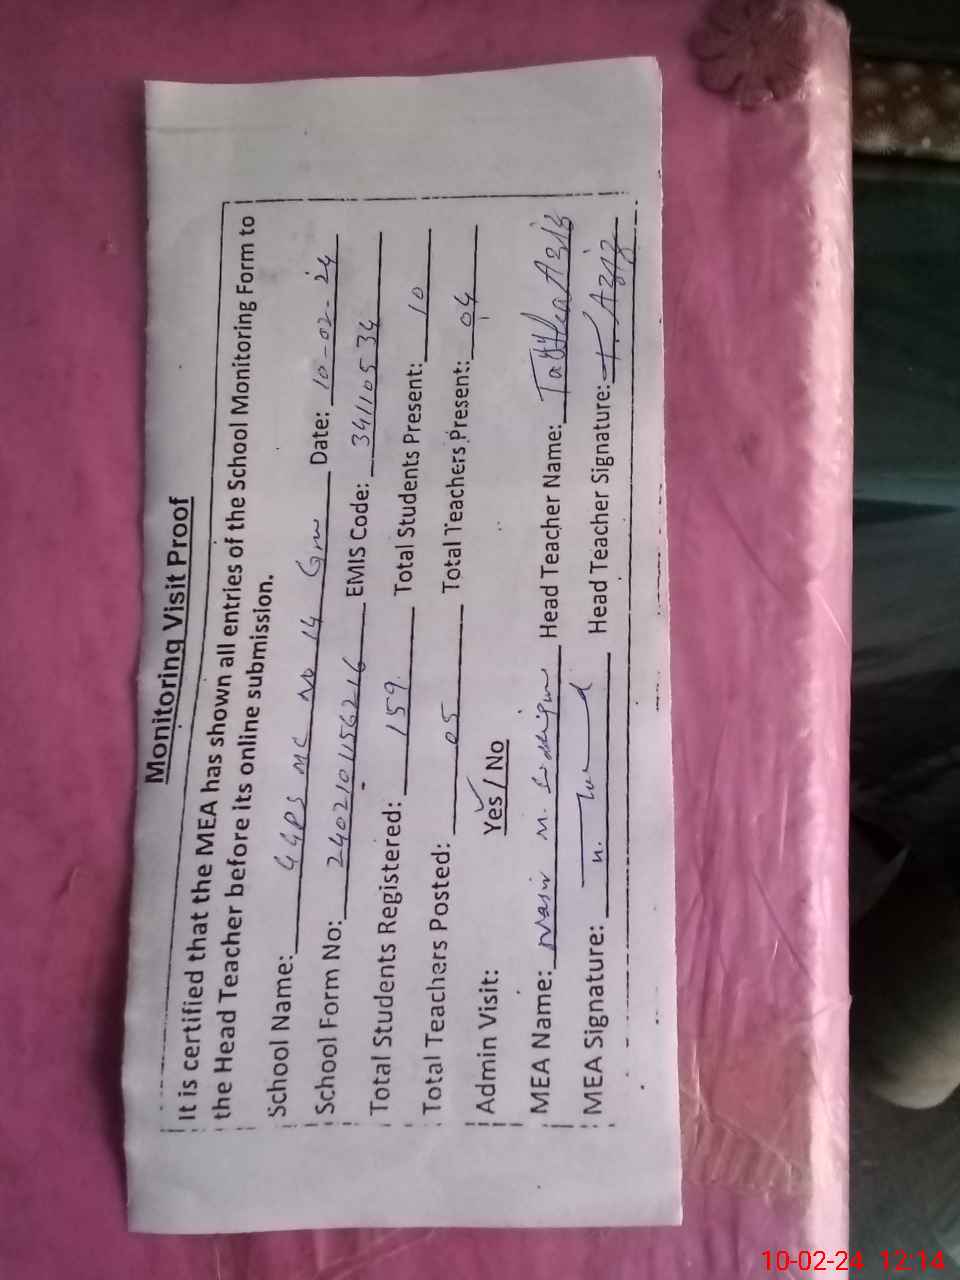 Monitoring Visit Proof
It is certified that the MEA has shown all entries of the School Monitoring Form to
the Head Teacher before its online submission.
School Name: GGPS MC No 14 Grw Date: 10-02-24
School Form No: 24021011562-16 EMIS Code: 34110534
Total Students Registered: 159 Total Students Present: 10
Total Teachers Posted: 05 Total Teachers Present: 04
Admin Visit: Yes / No
MEA Name: Nasir M. Head Teacher Name: Aziz
MEA Signature: Head Teacher Signature: T. Aziz
10-02-24 12:14